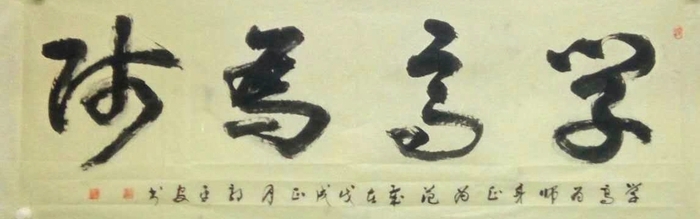 学高为师
学高为师身正为范岁在戊戌正月书